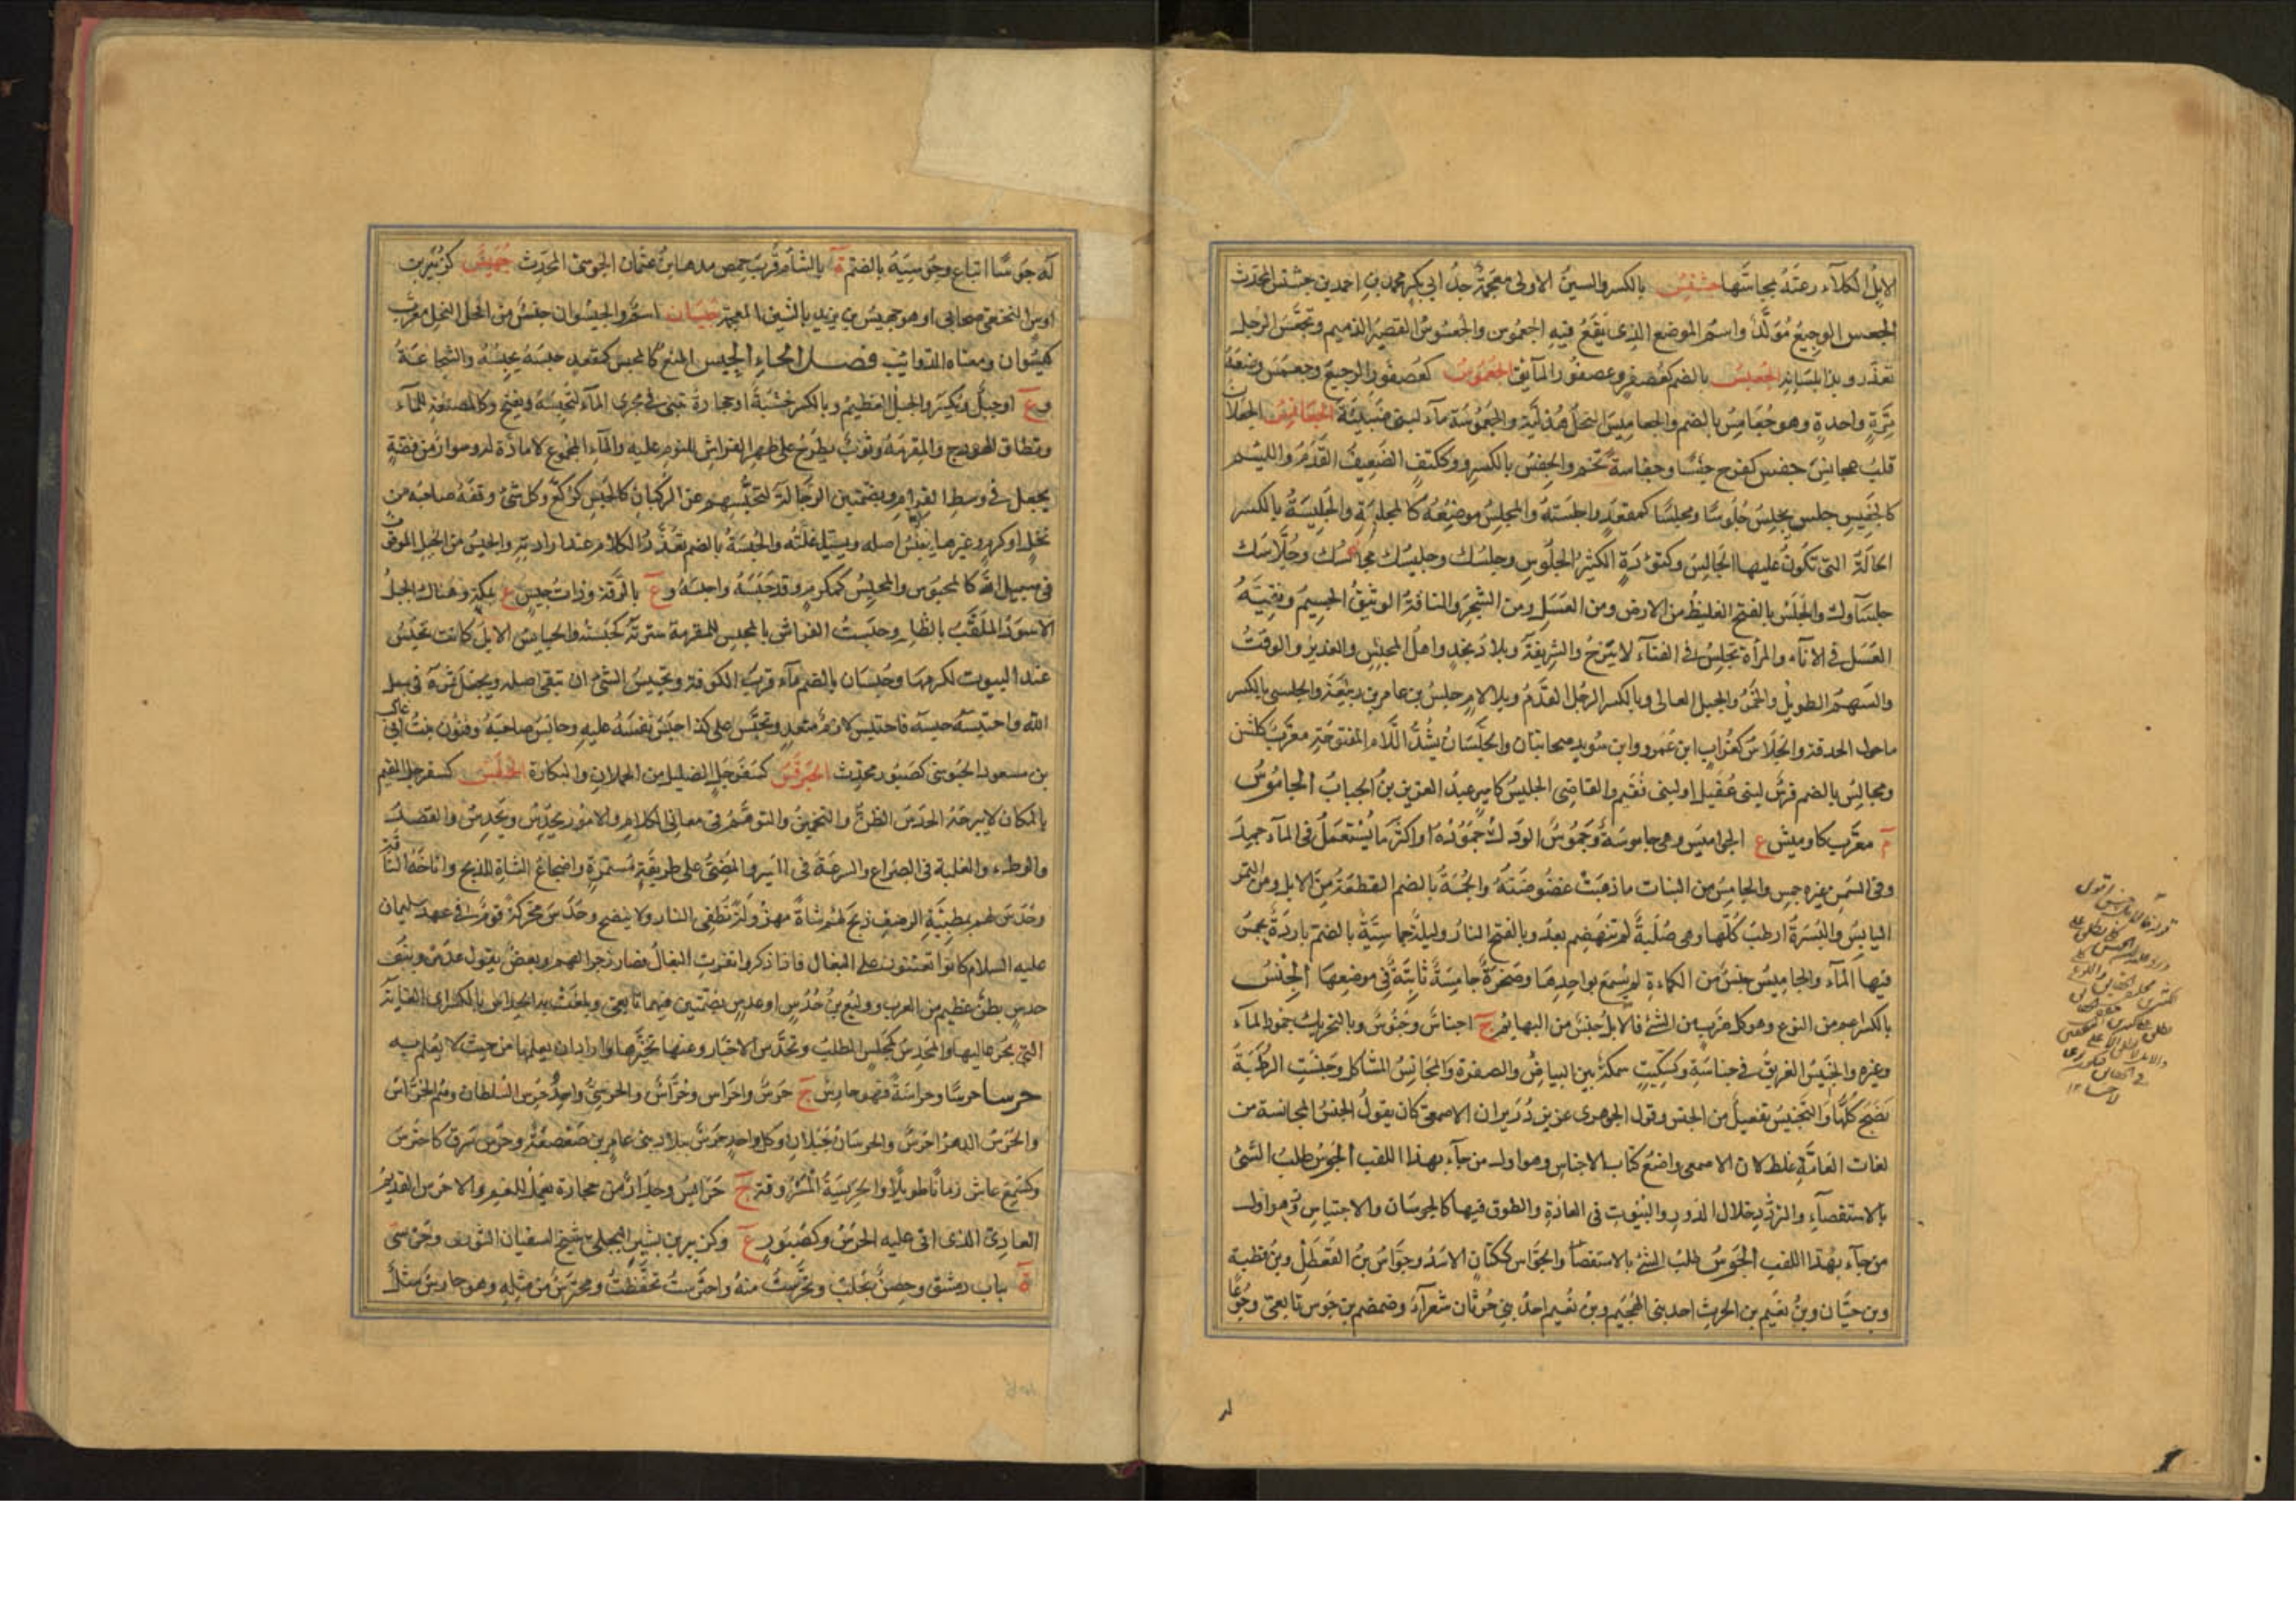 الابل الكلاء رعته بمجاسّها جشنس بالكسر والسين الاولى معجمة جدّ ابي بكر محمد بن احمد بن جشنس المحدث
الجعس الرجيع مُوَلّد واسم الموضع الذى يقع فيه الجعموس والجعسوس القصير الذميم وتجعّس الرجل
تعذّر وبذا بلسانه الجعبس بالضم كعصفر وعصفور المآئق الجعموس كعصفور الرجيع وجعمس وضعه
بمرّة واحدة وهو جعامس بالضم والجعاميس النخل هذلية والجعموسة مآء لبنى ضبينة الجعانس الجعلان
قلب عجانس جفس كفرح جفسا وجفاسة اتخم والجفس بالكسر وككتف الضعيف الفدم واللئيم
كالجفيس جلس يجلس جُلُوسًا ومجلسًا كمقعد واجلسته والمجلس موضعه كالمجلسة والجلسة بالكسر
الحالة التى تكون عليها الجالس وكتؤدة الكثير الجلوس وجلسك وجليسك مجالسك وجُلّاسك
جلسآوك والجلس بالفتح الغليظ من الارض ومن العسل ومن الشجر والناقة الوثيق الجسيم وبقية
العسل فى الانآء والمرأة تجلس فى الفنآء لا تبرح والشريفة وبلاد نجد واهل المجلس والغدير والوقت
والسهم الطويل والخمر والجبل العالى وبالكسر الرجل الفدم وبلا لام جلس بن عامر بن ربيعة والجلسى بالكسر
ماحول الحدقة والجلاس كغراب ابن عَمرو وابن سويد صحابيان والجلّسان بشدّ اللام المفتوحة معرب كلشن
ومجالس بالضم فرس لبنى عُقيل او لبنى نُقيم والقاضى الجليس كامير عبد العزيز بن الحباب الجاموس
م معرّب كاوميش ج الجواميس وهى جاموسة وجموس الودك جموده او اكثر ما يستعمل فى المآء جمد
وفى السمن وغيره جمس والجامس من النبات ما ذهبت غضوضته والجمسة بالضم القطعة من الابل ومن التمر
اليابس والبسرة ارطب كلها وهى صُلبة لم تنهضم بعد وبالفتح النار وليلة جماسيّة بالضم باردة يجمس
فيها المآء والجاميس جنس من الكماءة لم يسمع بواحدها وصخرة جامسة ثابتة فى موضعها الجِنْسُ
بالكسر اعم من النوع وهو كل ضرب من الشئ فالابل جنس من البهائم ج اجناس وجنوس وبالتحريك جمود المآء
وغيره والجنيس الغريق فى جناسة وكسكّيت سمكة بين البياض والصفرة والمجانس المشاكل وجنست الرطبة
نضج كلها والتجنيس تفعيل من الجنس وقول الجوهرى عن ابن دريد ان الاصمعى كان يقول الجنس المجانسة من
لغات العامّة غلط لان الاصمعى واضع كتاب الاجناس وهو اول من جآء بهذا اللقب الجوس طلب الشئ
بالاستقصآء والتردّد خلال الدور والبيوت فى الغارة والطوف فيها كالجوسان والاجتياس وهو اول
من جآء بهذا اللقب الجوس طلب الشئ بالاستقصا والجوّاس ككتان الاسد وجوّاس بن القعطل وبن قطبة
وبن حيّان وبن نعيم بن الحرث احد بنى الهجيم وبن نعيم احد بنى حرثان شعرآء وضمضم بن جوس تابعى وجوعًا
له جوسًا اتباع وجوسية بالضم ة بالشام قرب حمص منها ابن عثمان الجوسى المحدث جُمَيس كزبير بن
اوس النخعى صحابى او هو جميش بن يزيد بالشين المعجمة جيسان اسم والجيسوان جنس من افخر النخل معرب
كيسوان ومعناه الذوائب فصل الحاء الحبس المنع كالمحبس كمقعد حبسه يحبسه والشجاعة
وع او جبل ويكسر والجبل العظيم وبالكسر خشبة او حجارة تبنى فى مجرى المآء لتحبسه ويفتح وكالمصنعة للمآء
ونطاق الهودج والمقرمة وثوب يطرح على ظهر الفراش للنوم عليه والمآء المجموع لا مادّة له وسوار من فضة
يجعل فى وسط القرام وبضمتين الرجّالة لتحبّسهم عن الركبان كالحبس كركّع وكل شئ وقفه صاحبه من
نخل او كرم وغيرها يحبس اصله ويسبل غلته والحبسة بالضم تعذّر الكلام عند ارادته والحبيس من الخيل الموقوف
فى سبيل الله كالمحبوس والمحبس كمكرم وقد حبسه واحبسه وع بالرقة وذات حبيس ع بمكة وهناك الجبل
الاسود الملقب بالظلم وحبست الفراش بالمحبس للمقرمة سترته كحبسته والحبائس الابل كانت تحبس
عند البيوت لكرمها وحبسان بالضم مآء قرب الكوفة وتحبيس الشئ ان يبقى اصله ويجعل ثمره فى سبيل
الله واحتبسه حبسه فاحتبس لازم متعد وتحبّس على كذا حبس نفسه عليه وحابس صاحبه وفنون بنت ابى غالب
بن مسعود الحبوسى كصبور محدث الحبرقس كسفرجل الضئيل من الحملان والبكارة الحبلبس كسفرجل المقيم
بالمكان لا يبرحه الحدس الظن والتخمين والتوهم فى معانى الكلام والامور يحدِس ويحدُس والقصد
والوطء والغلبة فى الصراع والسرعة فى السير والمضىّ على طريقة مستمرة واضجاع الشاة للذبح واناخه الناقة
وحَدَس لهم بمطفئة الرضف ذبح لهم شاة مهزولة تطفئ النار ولا ينضج وحَدَس محركة قوم كانوا فى عهد سليمان
عليه السلام كانوا يعنفون على البغال فاذا ذكروا نفرت البغال فصار زجرا لهم وبعض يقول عدس وبنو
حدس بطن عظيم من العرب ووكيع بن حُدُس او عدس بضمتين فيهما تابعى وبلغت به الحداس بالكسر اى الغاية
التى يجرى اليها والمحدس كمجلس المطلب وتحدّس الاخبار وعنها تخبّرها واراد ان يعلمها من حيث لا يعلم به
حرسا حرسًا وحراسة فهو حارس ج حرس واحراس وحُرّاس والحرسىّ واحد حرس السلطان وهم الحرّاس
والحرس الدهر احرس والحرسان جبلان وكل واحد حرس ببلاد بنى عامر بن صعصعة وحرس سرق كاحترس
وكسمع عاش زمانا طويلا والحريسة المسروقة ج حرائس وجدار من حجارة يعمل للغنم والاحرس القديم
العادىّ الذى اتى عليه الحرس وكصبور ع وكزبير بن بشير البجلى شيخ لسفيان الثورى وحَرَستى
ة بباب دمشق وحصن بحلب وتحرّست منه واحترست تحفّظت ومحترس من مثله وهو حارس مثل